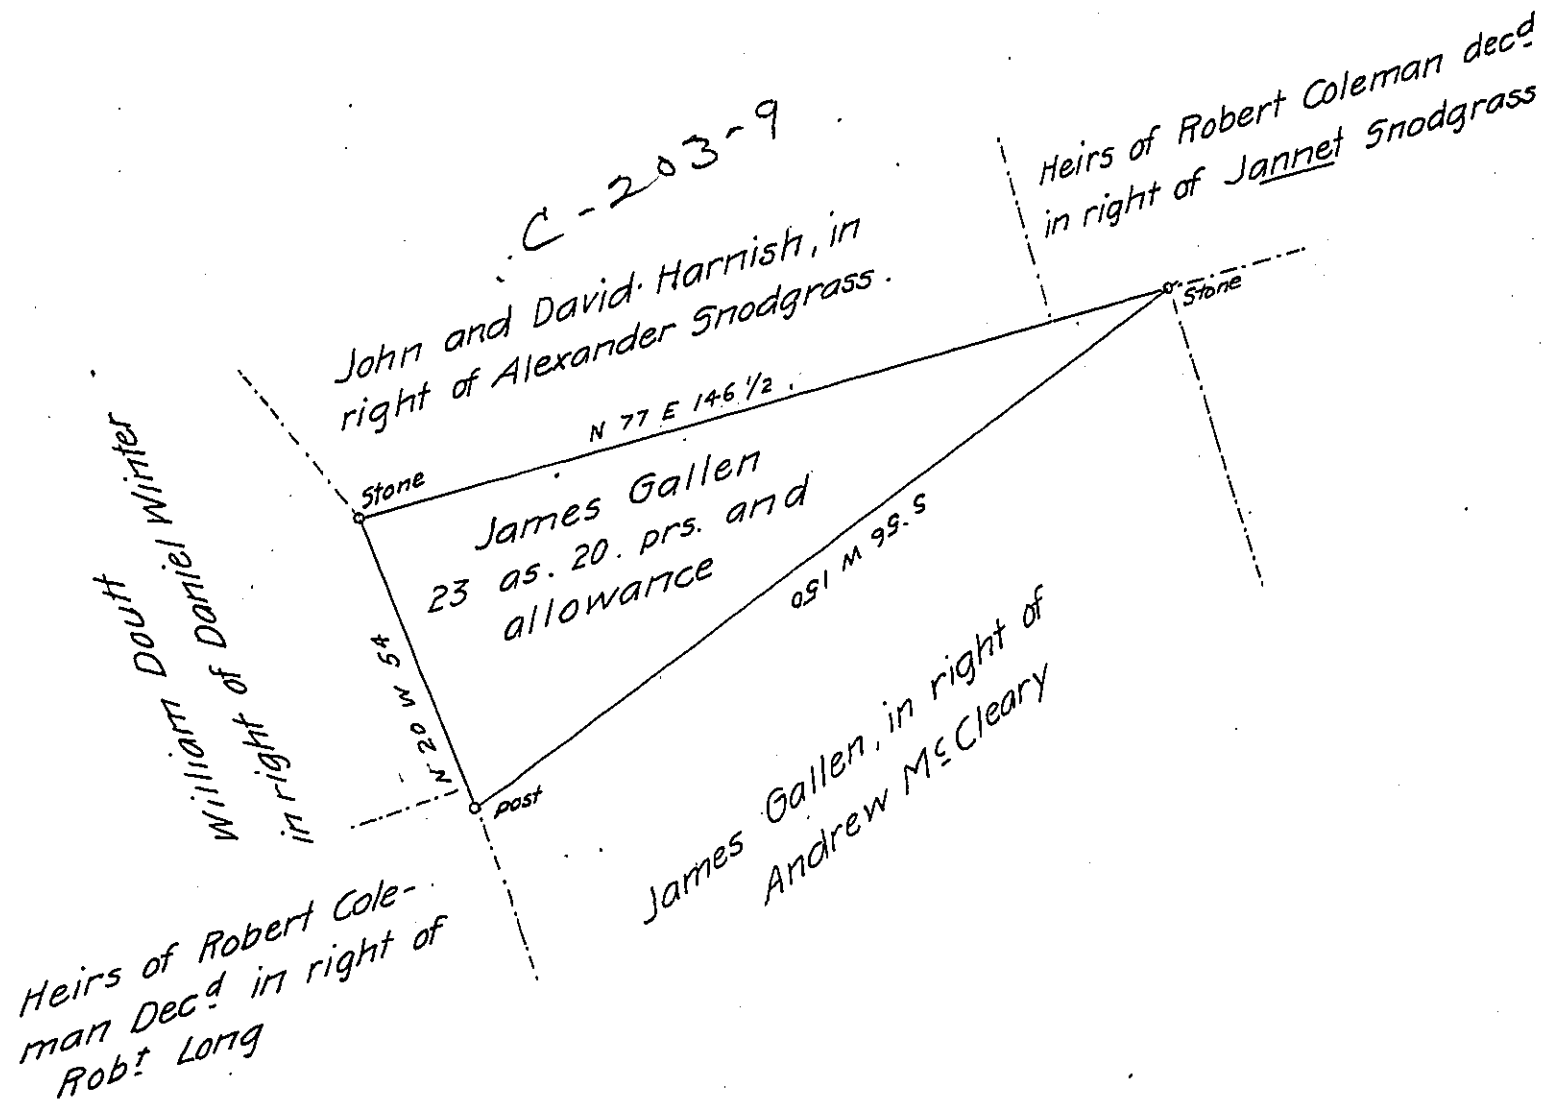 C-203-9
Heirs of Robert Coleman decd
in right of Jannet Snodgrass
John and David Harnish, in
right of Alexander Snodgrass.
Stone
N 77 E 146 1/2
Stone
James Gallen
23 as. 20. prs. and
allowance
S 56 W 150
N 20 W 54
William Doutt
in right of Daniel Winter
post
James Gallen, in right of
Andrew McCleary
Heirs of Robert Cole-
man Decd in right of
Robt Long